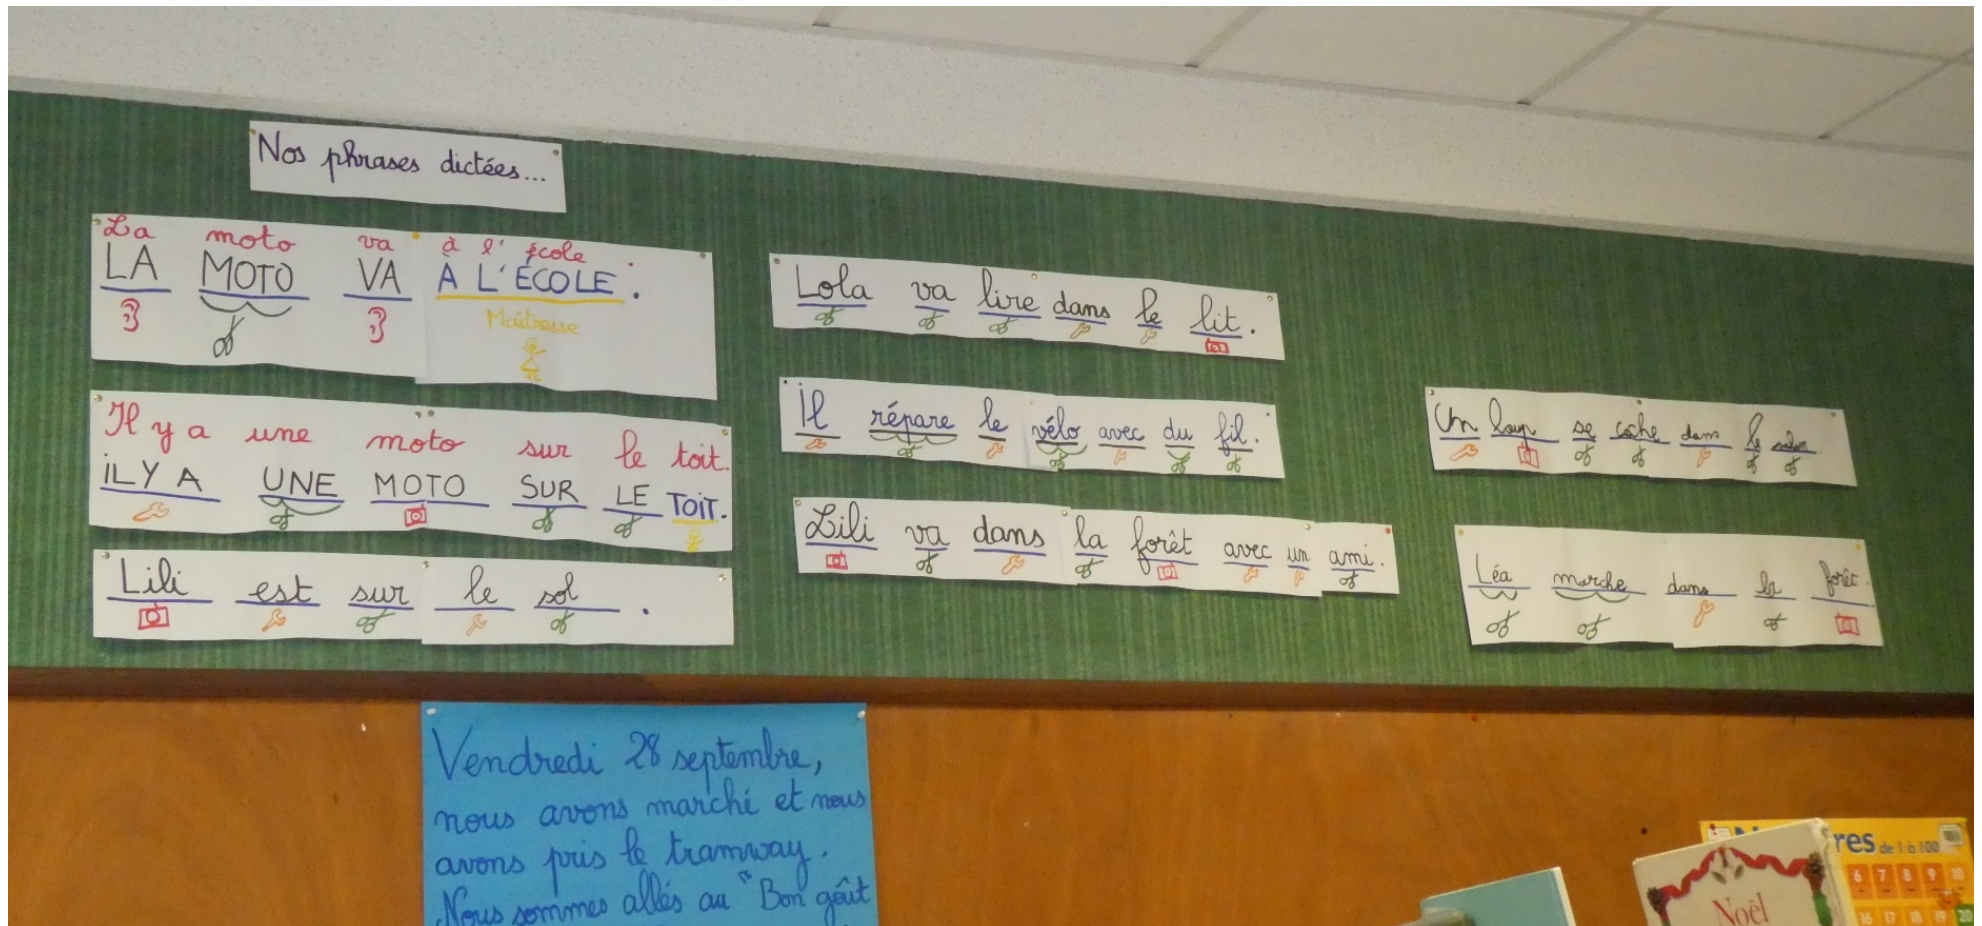 Nos phrases dictées...
La moto va à l'école.
LA MOTO VA À L'ÉCOLE.
Maîtresse
Il y a une moto sur le toit.
IL Y A UNE MOTO SUR LE TOIT.
Lili est sur le sol.
Lola va lire dans le lit.
Il répare le vélo avec du fil.
Lili va dans la forêt avec un ami.
Un loup se cache dans le
Léa marche dans la forêt.
Vendredi 28 septembre,
nous avons marché et nous
avons pris le tramway.
Nous sommes allés au "Bon goût
res de 1 à 100
6 7 8 9 10
16 17 18 19 20
Noël